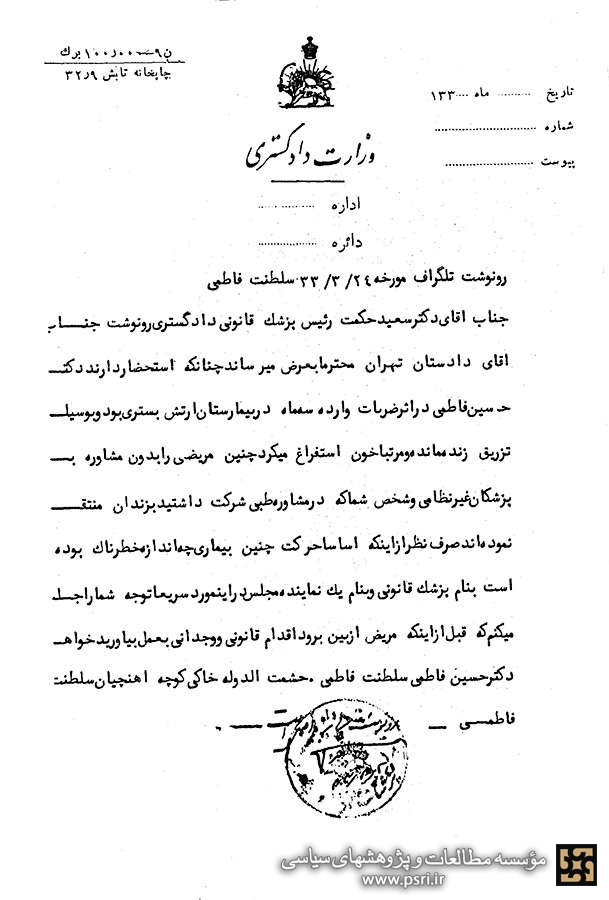 تاریخ .......... ماه .... ۱۳۳
شماره ..............................
پیوست ..........................
ن ۹ - ۱۰۰ر۰۰۰ برك
چاپخانه تابش ۳۲ر۹
وزارت دادگستری
اداره ................
دائره ................
رونوشت تلگراف مورخه ۲۴/ ۳/ ۳۳ سلطنت فاطمی
جناب اقای دکترسعیدحکمت رئیس پزشك قانونی دادگستری رونوشت جناب
اقای دادستان تهران محترما بعرض میرساند چنانکه استحضار دارند دکتـ
حسین فاطمی در اثر ضربات وارده سه ماه در بیمارستان ارتش بستری بود و بوسیلـ
تزریق زنده مانده و مرتبا خون استفراغ میکرد چنین مریضی را بدون مشاوره بـ
پزشکان غیر نظامی و شخص شما که در مشاوره طبی شرکت داشتید بزندان منتقـ
نموده اند صرف نظر از اینکه اساسا حرکت چنین بیماری چه اندازه خطرناك بوده
است بنام پزشك قانونی و بنام یك نماینده مجلس در اینمورد سریعا توجه شما را جلـ
میکنم که قبل از اینکه مریض از بین برود اقدام قانونی و وجدانی بعمل بیاورید خواهـ
دکتر حسین فاطمی سلطنت فاطمی . حشمت الدوله خاکی کوچه اهنچیان سلطنت
فاطمـی
مؤسسه مطالعات و پژوهشهای سیاسی
www.psri.ir